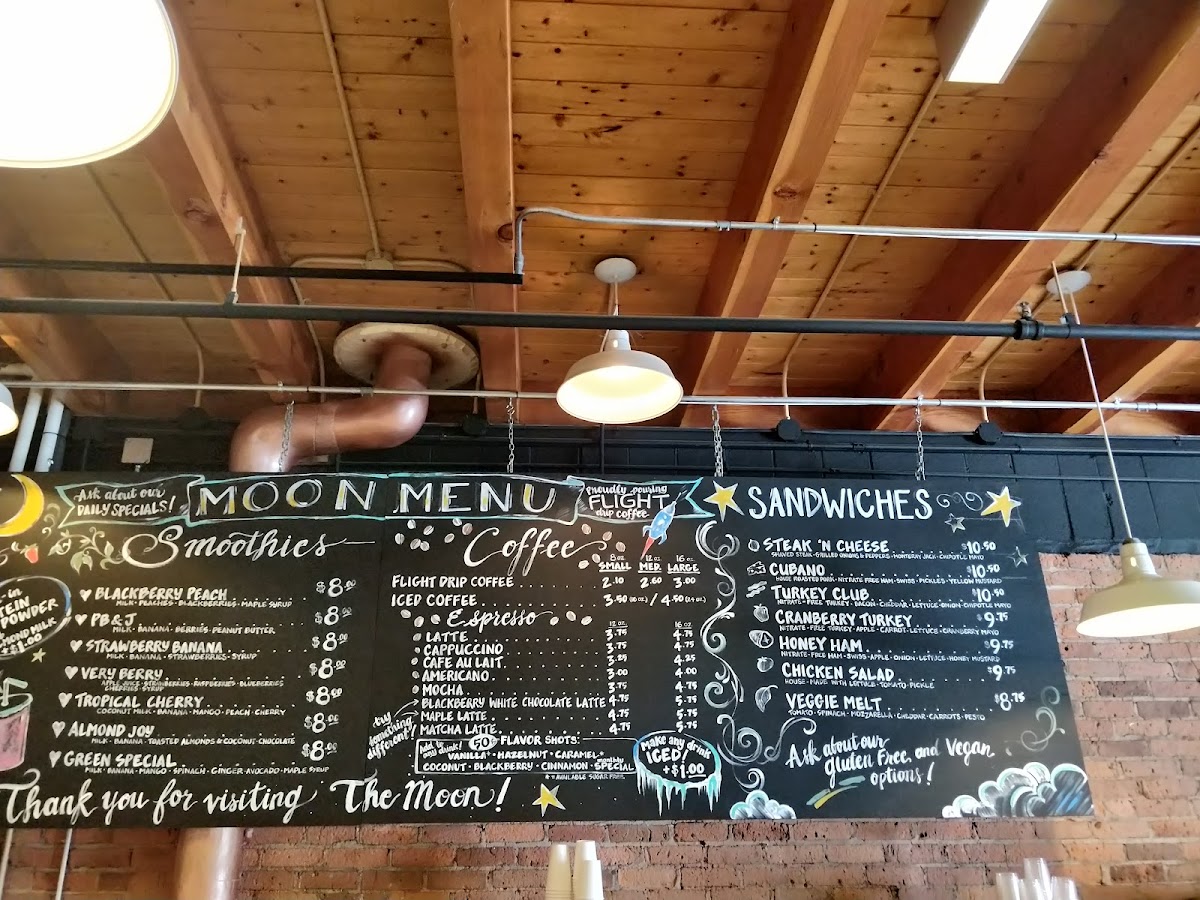 Ask about our
DAILY SPECIALS!
MOON MENU
Proudly pouring
FLIGHT
drip coffee
Smoothies
in
TEIN
POWDER
MOND MILK
$1.00
BLACKBERRY PEACH $8.00
MILK · PEACHES · BLACKBERRIES · MAPLE SYRUP
PB & J $8.00
MILK · BANANA · BERRIES · PEANUT BUTTER
STRAWBERRY BANANA $8.00
MILK · BANANA · STRAWBERRIES · SYRUP
VERY BERRY $8.00
APPLE JUICE · STRAWBERRIES · RASPBERRIES · BLUEBERRIES
CHERRIES · SYRUP
TROPICAL CHERRY $8.00
COCONUT MILK · BANANA · MANGO · PEACH · CHERRY
ALMOND JOY $8.00
MILK · BANANA · TOASTED ALMONDS & COCONUT · CHOCOLATE
GREEN SPECIAL $8.00
MILK · BANANA · MANGO · SPINACH · GINGER · AVOCADO · MAPLE SYRUP
Thank you for visiting The Moon!
Coffee
8 oz 12 oz 16 oz
SMALL MED. LARGE
FLIGHT DRIP COFFEE 2.10 2.60 3.00
ICED COFFEE 3.50 (16 oz.) / 4.50 (24 oz.)
Espresso
12 oz 16 oz
LATTE 3.75 4.75
CAPPUCCINO 3.75 4.75
CAFE AU LAIT 3.25 4.25
AMERICANO 3.00 4.00
MOCHA 3.75 4.75
BLACKBERRY WHITE CHOCOLATE LATTE 4.75 5.75
MAPLE LATTE 4.75 5.75
MATCHA LATTE 4.75 5.75
try
something
different!
Add to
any drink! 50¢ FLAVOR SHOTS:
VANILLA* · HAZELNUT · CARAMEL*
COCONUT · BLACKBERRY · CINNAMON · monthly SPECIAL
* = AVAILABLE SUGAR FREE
Make any drink
ICED!
+$1.00
SANDWICHES
STEAK 'N CHEESE $10.50
SHAVED STEAK · GRILLED ONIONS & PEPPERS · MONTEREY JACK · CHIPOTLE MAYO
CUBANO $10.50
HOUSE ROASTED PORK · NITRATE FREE HAM · SWISS · PICKLES · YELLOW MUSTARD
TURKEY CLUB $10.50
NITRATE · FREE TURKEY · BACON · CHEDDAR · LETTUCE · ONION · CHIPOTLE MAYO
CRANBERRY TURKEY $9.75
NITRATE · FREE TURKEY · APPLE · CARROT · LETTUCE · CRANBERRY MAYO
HONEY HAM $9.75
NITRATE · FREE HAM · SWISS · APPLE · ONION · LETTUCE · HONEY MUSTARD
CHICKEN SALAD $9.75
HOUSE · MADE WITH LETTUCE · TOMATO · PICKLE
VEGGIE MELT $8.75
TOMATO · SPINACH · MOZZARELLA · CHEDDAR · CARROTS · PESTO
Ask about our
Gluten Free, and Vegan
options!